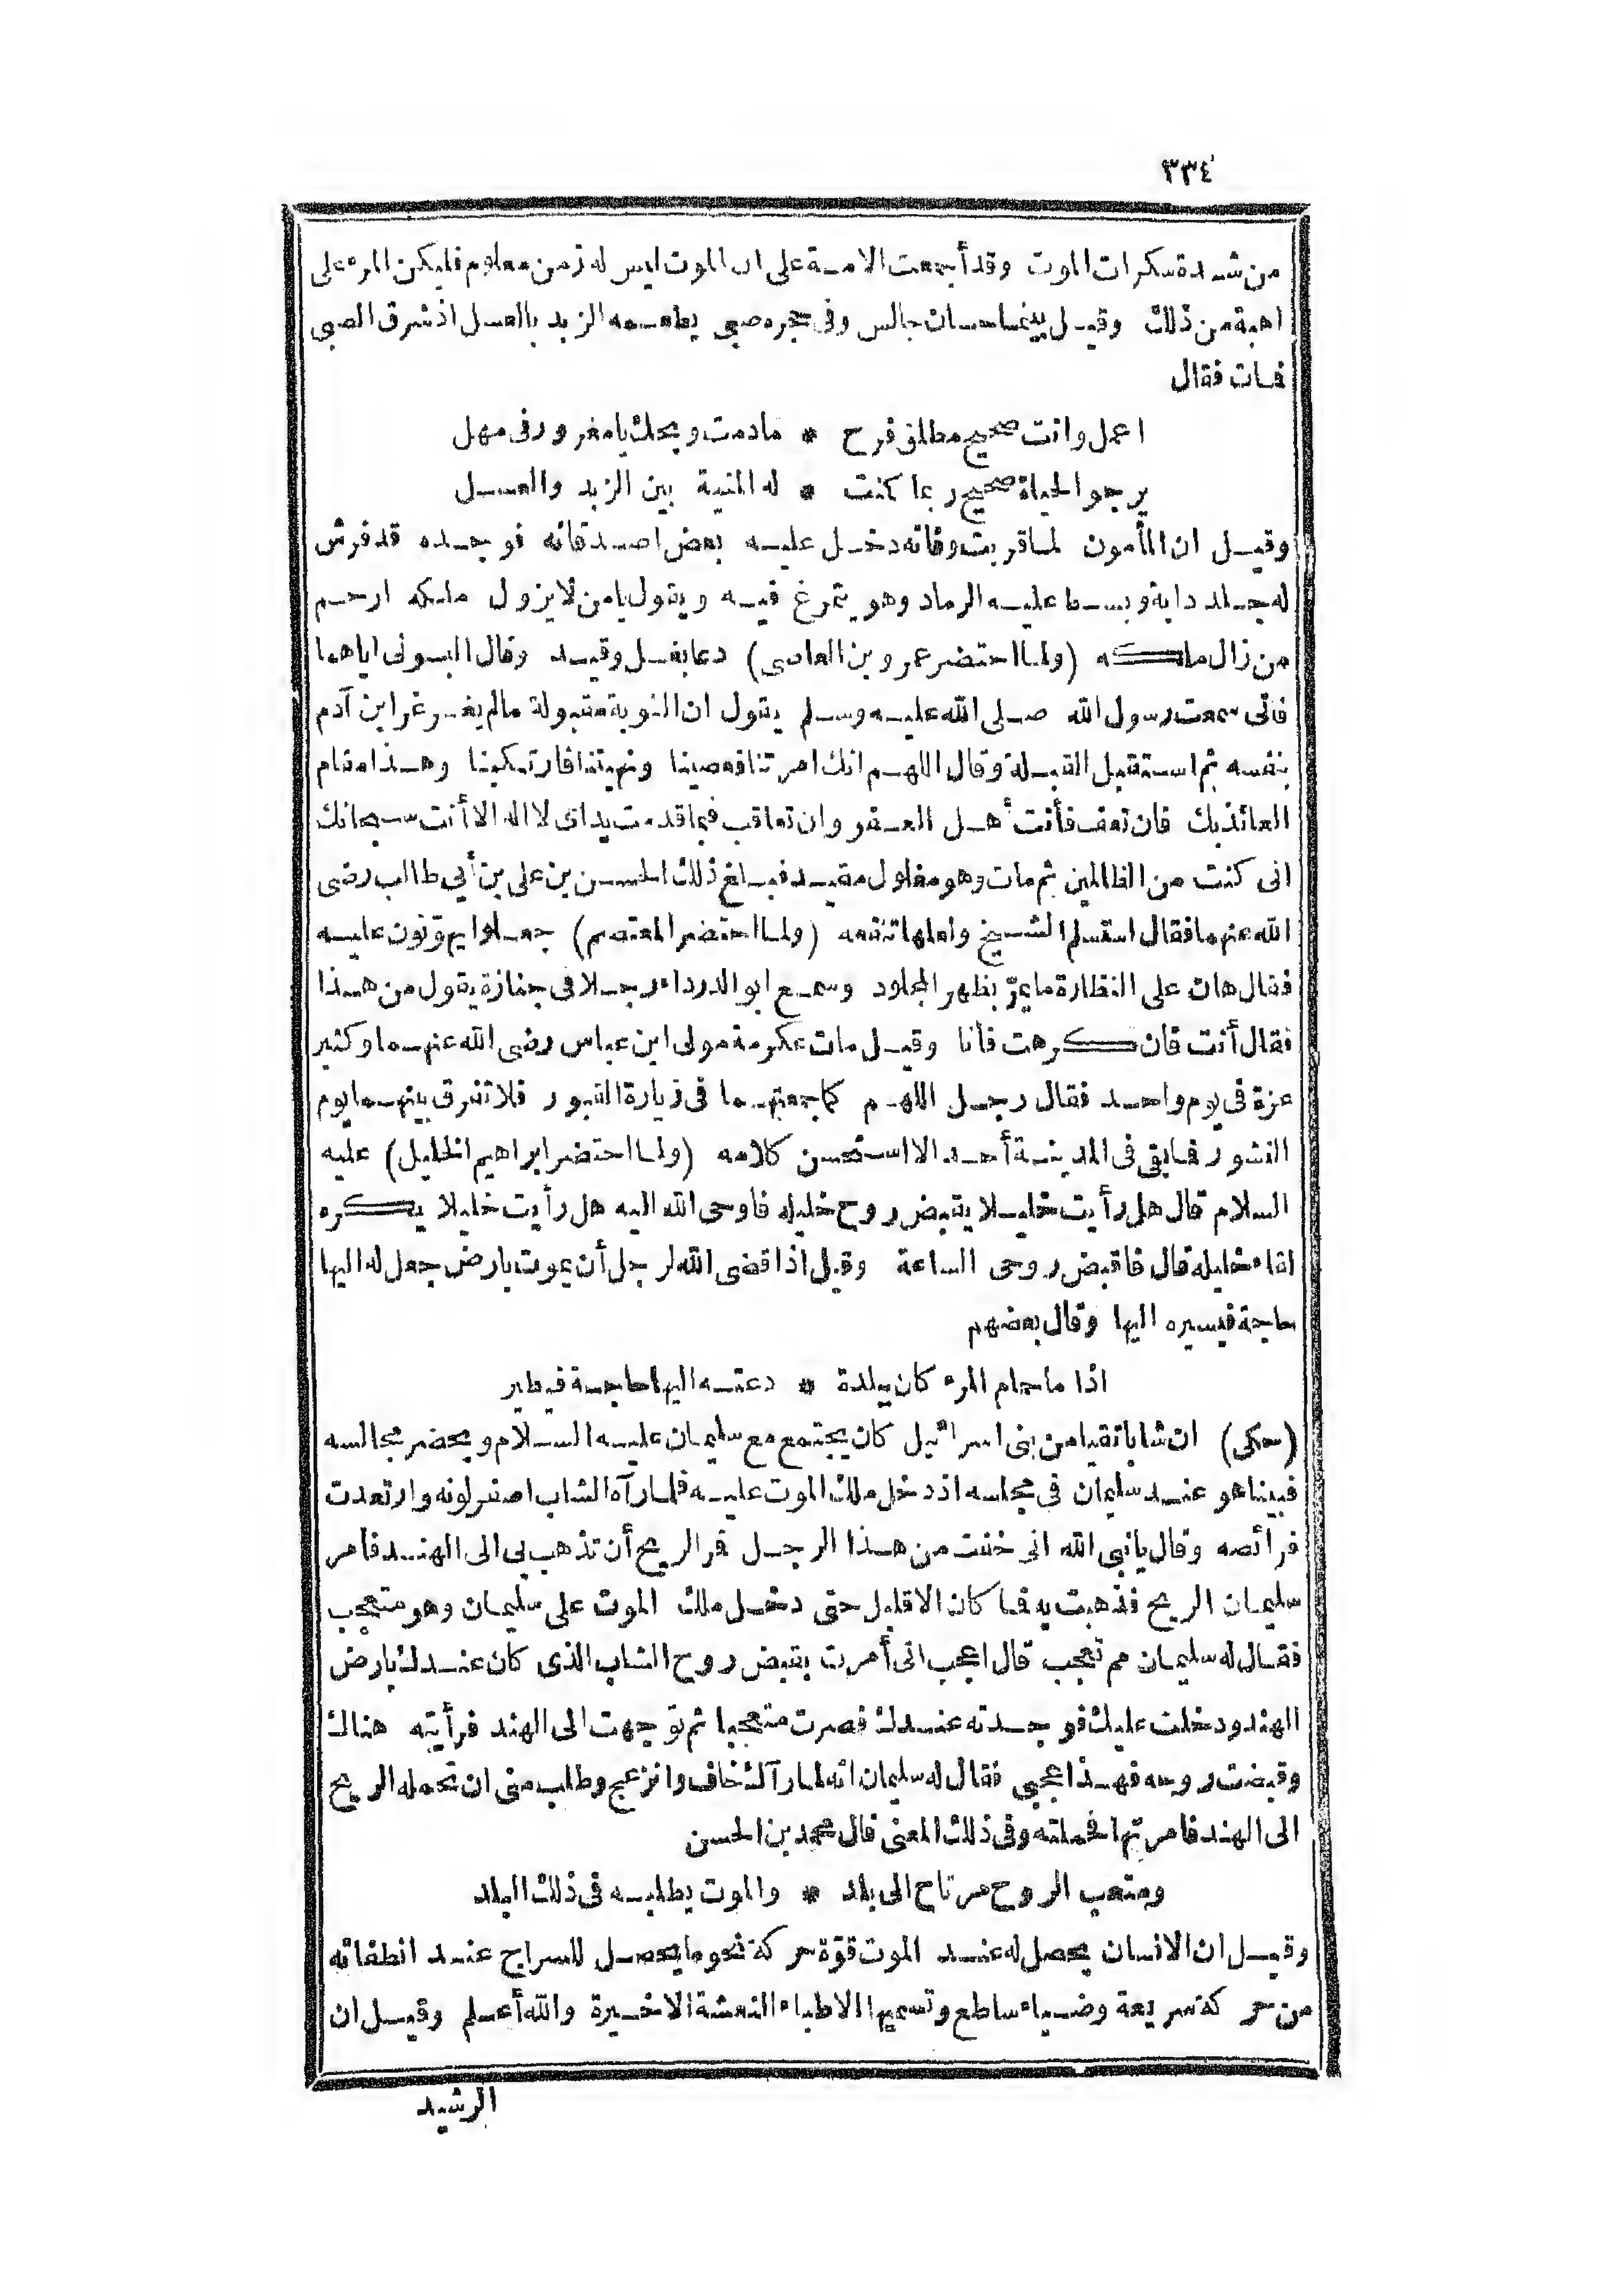 ٣٣٤
من شدة سكرات الموت وقد أجمعت الامة على ان الموت ليس له زمن معلوم فليكن المرء على
اهبة من ذلك وقيل بينما حسان جالس وفى حجره صبى يطعمه الزبد بالعسل اذ شرق الصبى
فمات فقال
اعمل وانت صحيح مطلق فرح * مادمت ويحك يا مغرور فى مهل
يرجو الحياة صحيح ربما كنت * له المنية بين الزبد والعسل
وقيل ان المأمون لما قربت وفاته دخل عليه بعض اصدقائه فوجده قد فرش
له جلد دابة وبسط عليه الرماد وهو يتمرغ فيه ويقول يا من لا يزول ملكه ارحم
من زال ملكه (ولما احتضر عمرو بن العاصى) دعا بغل وقيد وقال البسونى اياهما
فانى سمعت رسول الله صلى الله عليه وسلم يقول ان التوبة مقبولة مالم يغرغر ابن آدم
بنفسه ثم استقبل القبلة وقال اللهم انك امرتنا فعصينا ونهيتنا فارتكبنا وهذا مقام
العائذ بك فان تعف فأنت أهل العفو وان تعاقب فبما قدمت يداى لا اله الا أنت سبحانك
انى كنت من الظالمين ثم مات وهو مغلول مقيد فبلغ ذلك الحسن بن على بن أبى طالب رضى
الله عنهما فقال استسلم الشيخ ولعلها تنفعه (ولما احتضر المعتصم) جعلوا يهونون عليه
فقال هان على النظارة ما يمرّ بظهر المجلود وسمع ابو الدرداء رجلا فى جنازة يقول من هذا
فقال أنت فان كرهت فأنا وقيل مات عكرمة مولى ابن عباس رضى الله عنهما وكثير
عزة فى يوم واحد فقال رجل اللهم كما جمعتهما فى زيارة القبور فلا تفرق بينهما يوم
النشور فما بقى فى المدينة أحد الا استحسن كلامه (ولما احتضر ابراهيم الخليل) عليه
السلام قال هل رأيت خليلا يقبض روح خليله فاوحى الله اليه هل رأيت خليلا يكره
لقاء خليله قال فاقبض روحى الساعة وقيل اذا قضى الله لرجل أن يموت بارض جعل له اليها
حاجة فيسيره اليها وقال بعضهم
اذا ما حمام المرء كان ببلدة * دعته اليها حاجة فيطير
(حكى) ان شابا تقيا من بنى اسرائيل كان يجتمع مع سليمان عليه السلام ويحضر مجالسه
فبينا هو عند سليمان فى مجلسه اذ دخل ملك الموت عليه فلما رآه الشاب اصفر لونه وارتعدت
فرائصه وقال يا نبى الله انى خفت من هذا الرجل فمر الريح أن تذهب بى الى الهند فامر
سليمان الريح فذهبت به فما كان الا قليل حتى دخل ملك الموت على سليمان وهو متعجب
فقال له سليمان مم تعجب قال اعجب انى أمرت بقبض روح الشاب الذى كان عندك بارض
الهند ودخلت عليك فوجدته عندك فصرت متعجبا ثم توّجهت الى الهند فرأيته هناك
وقبضت روحه فهذا عجبى فقال له سليمان انه لما رآك خاف وانزعج وطلب منى ان تحمله الريح
الى الهند فامرتها فحملته وفى ذلك المعنى قال محمد بن الحسن
ومتعب الروح مرتاح الى بلد * والموت يطلبه فى ذلك البلد
وقيل ان الانسان يحصل له عند الموت قوّة حركة نحو ما يحصل للسراج عند انطفائه
من حركة سريعة وضياء ساطع وتسميها الاطباء النعشة الاخيرة والله أعلم وقيل ان
الرشيد